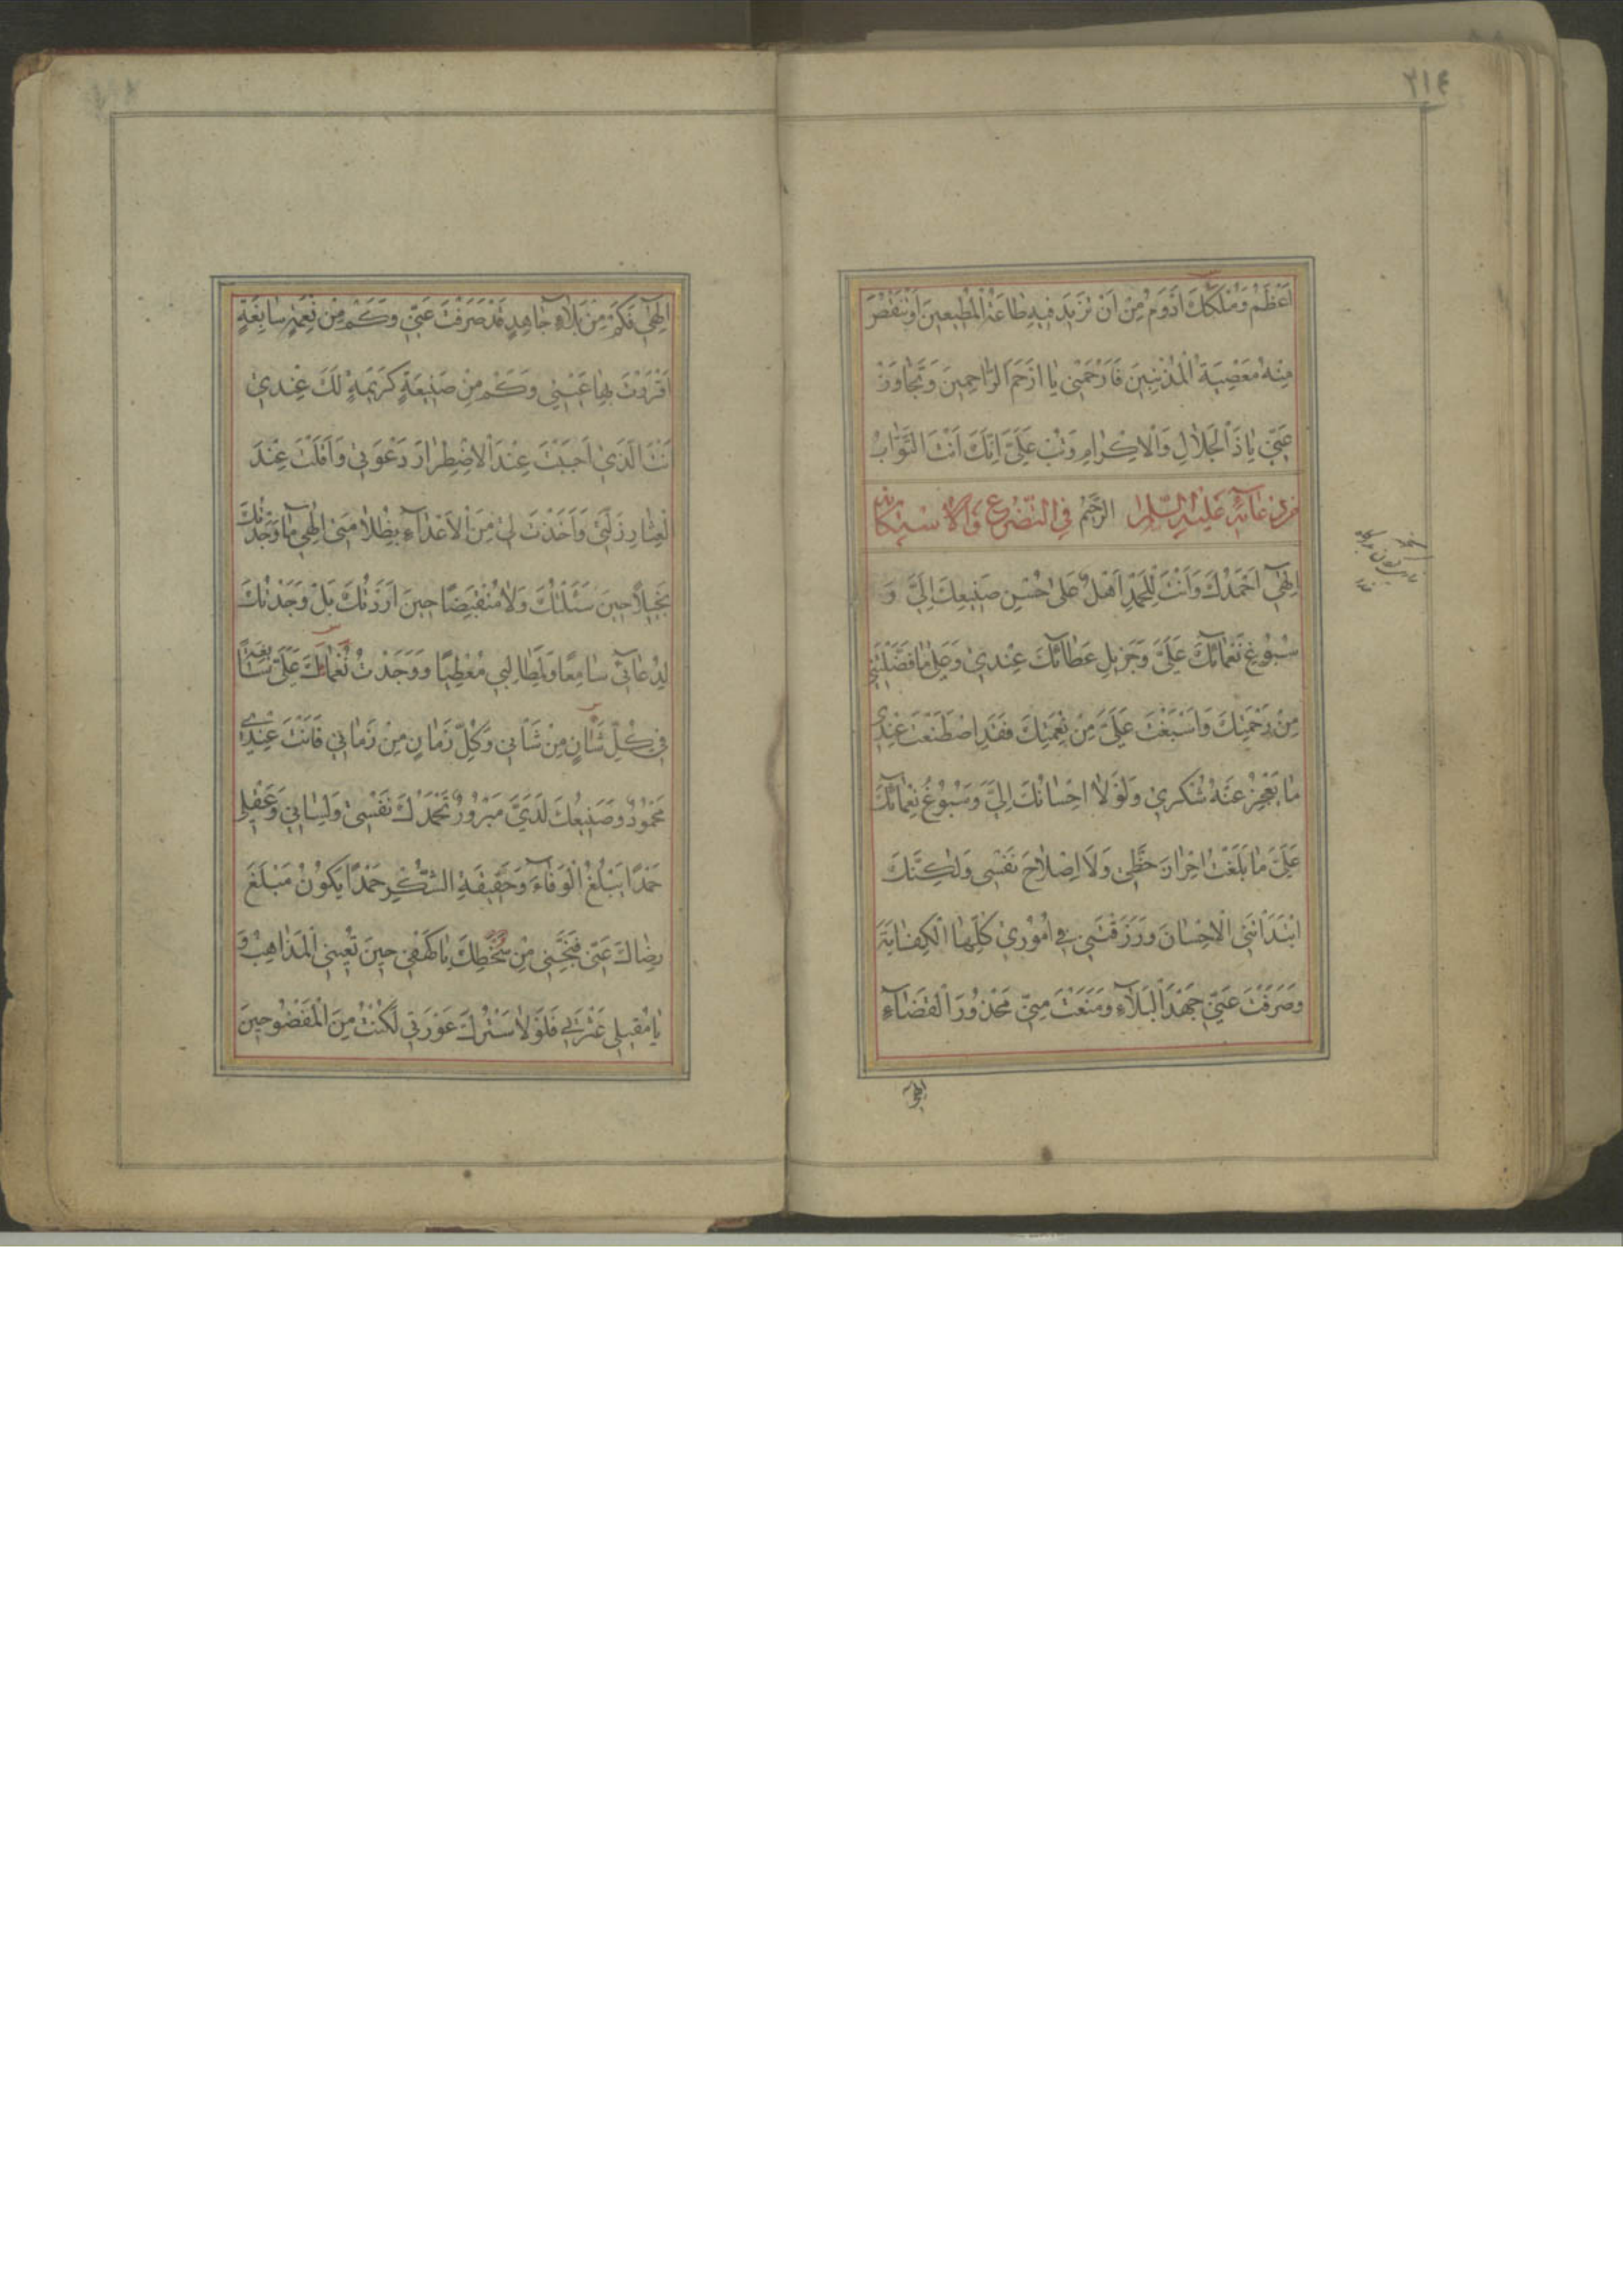 ٢١٤
اَعْظَمُ وَمُلْكُكَ اَدْوَمُ مِنْ اَنْ تَزِيدَ فِيهِ طَاعَةُ الْمُطِيعِينَ اَوْ تَنْقُصَ
مِنْهُ مَعْصِيَةُ الْمُذْنِبِينَ فَارْحَمْنِي يَا اَرْحَمَ الرَّاحِمِينَ وَتَجَاوَزْ
عَنِّي يَا ذَا الْجَلَالِ وَالْاِكْرَامِ وَتُبْ عَلَيَّ اِنَّكَ اَنْتَ التَّوَّابُ
دُعَائِهِ عَلَيْهِ السَّلَامُ الرَّحِيمُ فِي التَّضَرُّعِ وَالْاِسْتِكَانَةِ
اِلٰهِي اَحْمَدُكَ وَاَنْتَ لِلْحَمْدِ اَهْلٌ عَلَى حُسْنِ صَنِيعِكَ اِلَيَّ وَ
سُبُوغِ نَعْمَائِكَ عَلَيَّ وَجَزِيلِ عَطَائِكَ عِنْدِي وَعَلَى مَا فَضَّلْتَنِي
مِنْ رَحْمَتِكَ وَاَسْبَغْتَ عَلَيَّ مِنْ نِعْمَتِكَ فَقَدِ اصْطَنَعْتَ عِنْدِي
مَا يَعْجِزُ عَنْهُ شُكْرِي وَلَوْلَا اِحْسَانُكَ اِلَيَّ وَسُبُوغُ نَعْمَائِكَ
عَلَيَّ مَا بَلَغْتُ اِحْرَازَ حَظِّي وَلَا اِصْلَاحَ نَفْسِي وَلٰكِنَّكَ
ابْتَدَاْتَنِي الْاِحْسَانَ وَرَزَقْتَنِي فِي اُمُورِي كُلِّهَا الْكِفَايَةَ
وَصَرَفْتَ عَنِّي جَهْدَ الْبَلَاءِ وَمَنَعْتَ مِنِّي مَحْذُورَ الْقَضَاءِ
اِلٰهِي
اِلٰهِي فَكَمْ مِنْ بَلَاءٍ جَاهِدٍ قَدْ صَرَفْتَ عَنِّي وَكَمْ مِنْ نِعْمَةٍ سَابِغَةٍ
اَقْرَرْتَ بِهَا عَيْنِي وَكَمْ مِنْ صَنِيعَةٍ كَرِيمَةٍ لَكَ عِنْدِي
اَنْتَ الَّذِي اَجَبْتَ عِنْدَ الْاِضْطِرَارِ دَعْوَتِي وَاَقَلْتَ عِنْدَ
الْعِثَارِ زَلَّتِي وَاَخَذْتَ لِي مِنَ الْاَعْدَاءِ بِظُلَامَتِي اِلٰهِي مَا وَجَدْتُكَ
بَخِيلًا حِينَ سَئَلْتُكَ وَلَا مُنْقَبِضًا حِينَ اَرَدْتُكَ بَلْ وَجَدْتُكَ
لِدُعَائِي سَامِعًا وَلِمَطَالِبِي مُعْطِيًا وَوَجَدْتُ نُعْمَاكَ عَلَيَّ سَابِغَةً
فِي كُلِّ شَاْنٍ مِنْ شَاْنِي وَكُلِّ زَمَانٍ مِنْ زَمَانِي فَاَنْتَ عِنْدِي
مَحْمُودٌ وَصَنِيعُكَ لَدَيَّ مَبْرُورٌ تَحْمَدُكَ نَفْسِي وَلِسَانِي وَعَقْلِي
حَمْدًا يَبْلُغُ الْوَفَاءَ وَحَقِيقَةِ الشُّكْرِ حَمْدًا يَكُونُ مَبْلَغَ
رِضَاكَ عَنِّي فَنَجِّنِي مِنْ سُخْطِكَ يَا كَهْفِي حِينَ تُعْيِينِي الْمَذَاهِبُ وَ
يَا مُقِيلِي عَثْرَتِي فَلَوْلَا سَتْرُكَ عَوْرَتِي لَكُنْتُ مِنَ الْمَفْضُوحِينَ